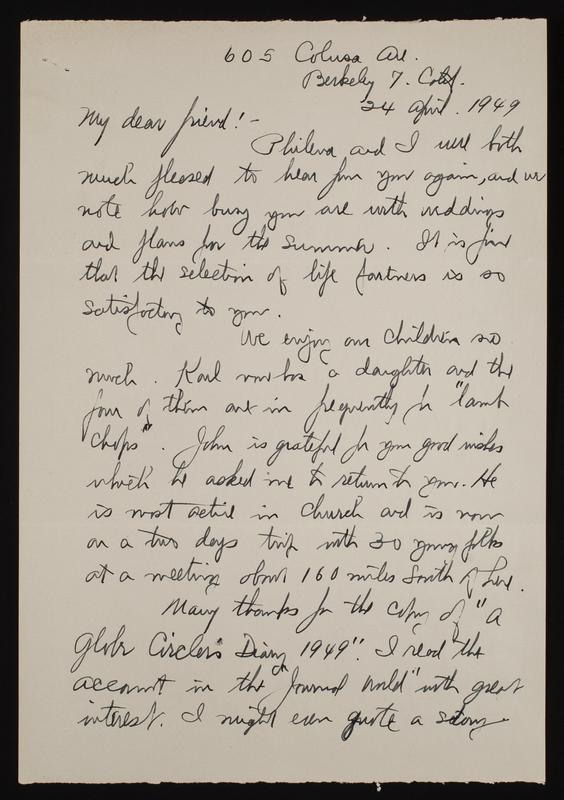 605 Colusa Ave.
Berkeley 7. Calif.
24 April. 1949
My dear friend! -
Philena and I were both
much pleased to hear from you again, and we
note how busy you are with weddings
and plans for the summer. It is fine
that the selection of life partners is so
satisfactory to you.
We enjoy our children so
much. Karl now has a daughter and the
four of them are in frequently for "lamb
chops". John is grateful for your good wishes
which he asked me to return to you. He
is most active in church and is now
on a two days trip with 30 young folks
at a meeting about 160 miles South of here.
Many thanks for the copy of "A
Globe Circler's Diary 1949". I read the
account in the "Journal World" with great
interest. I might even quote a story